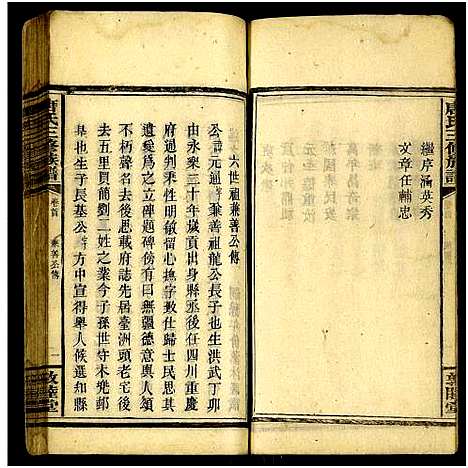 繼序滿英秀
文章任輔忠
敦睦堂
唐氏三修族譜
卷首
兼善公傳
一
敦睦堂
六世祖兼善公傳
公諱元通字兼善祖龍公長子也生洪武丁卯
由永樂三十年歲貢出身縣丞後任四川重慶
府通判秉性明敏留心撫字數仕歸士民思其
遺愛爲之立題碑傍有曰無疆德意輿人頌
不朽聲名去後思載府誌先居臺洲頭老宅後
去五里頁簡劉二姓之業今子孫世守未艾郵
阜也生子長基公字方中宣得舉人候選知縣